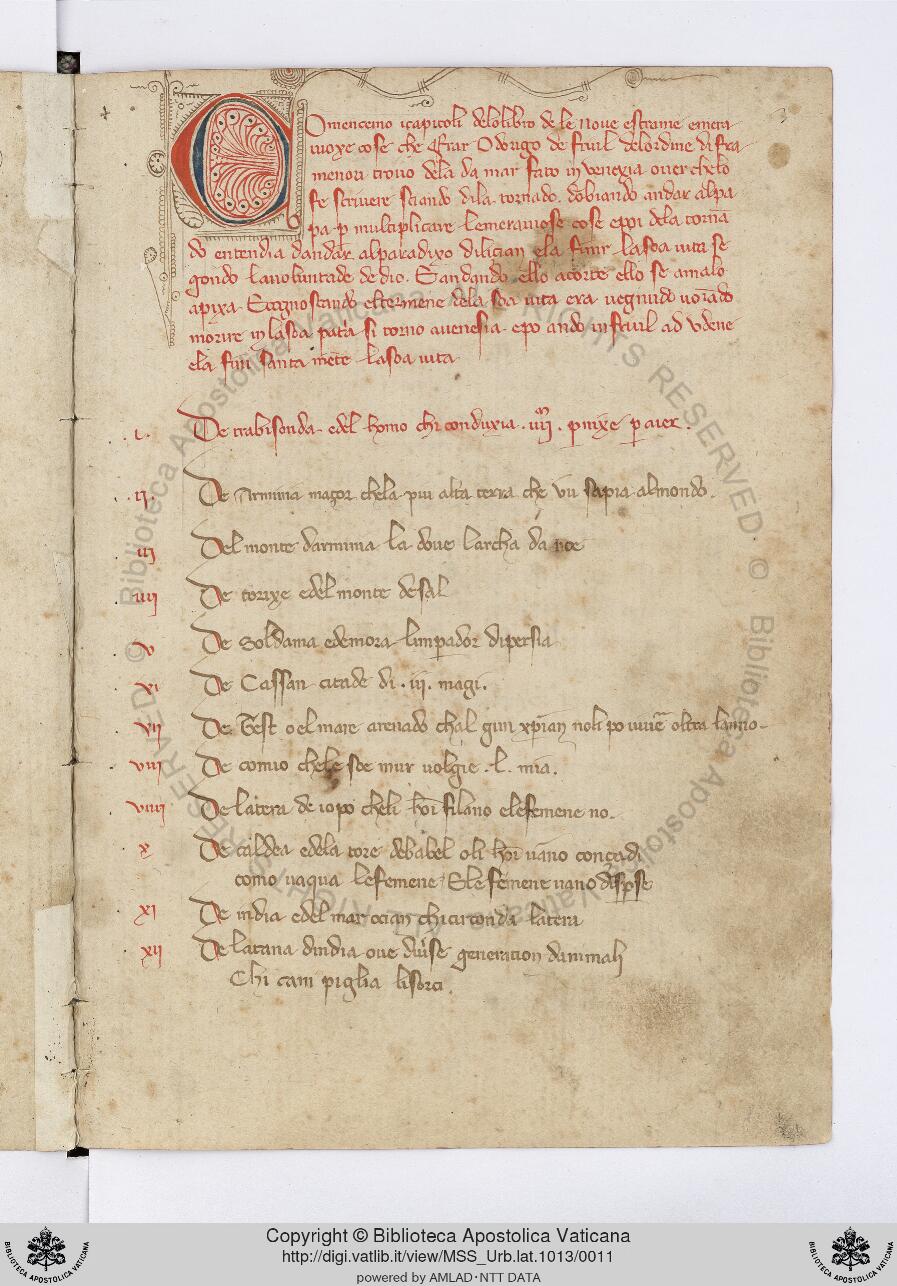 3
Comencemo i capitoli delo libro de le nove e strame e mera
uoxe cose che frar Odorigo de friul delordine di fra
menori trouo dela da mar fato in venexia ouer chelo
fe scriuere siando dila tornado. dobiando andar alpa
pa. p multiplicare le merauiose cose e ppi dela torna
do entendia dandar. al paradixo dilician ela finir la soa uita se
gondo la uoluntade de dio. E andando ello a corte ello se amalo
a pixa. E cognoscando el termene dela soa uita era uegnudo uoiado
morire in la soa patria si torno a uenesia. epo ando in friuil ad Vdene
ela fini santa mete la soa uita
.i. De trabisonda. edel homo chi conduxia .iiij. pnixe p aier.
.ij. De Arminia magor chela piu alta terra che vn sapia al mondo.
iij Del monte darminia la doue larcha da noe
iiij De torixe edel monte de sal
v De Soldania e demora limpador di persia
vi De Cassan citade di .iii. magi.
vij De Gest o el mare arenado chal gun xpian noli po uiue oltra lanno.
viij De comio chele soe mur uolgie .l. mia.
viiij De la tera de iopo cheli hoi filano ele femene no.
x De caldea e dela tore de babel oli hoi uano conçadi
como uaqua le femene. E le femene uano dispse
xi De india edel mar ocian chi circonda la tera
xij De la tana dindia oue diuse generation danimali
Chi cani piglia li sorci.
© Biblioteca Apostolica Vaticana. ALL RIGHTS RESERVED. © Biblioteca Apostolica Vaticana. ALL RIGHTS RESERVED.
Copyright © Biblioteca Apostolica Vaticana
http://digi.vatlib.it/view/MSS_Urb.lat.1013/0011
powered by AMLAD • NTT DATA
BIBLIOTECA APOSTOLICA VATICANA
BIBLIOTECA APOSTOLICA VATICANA